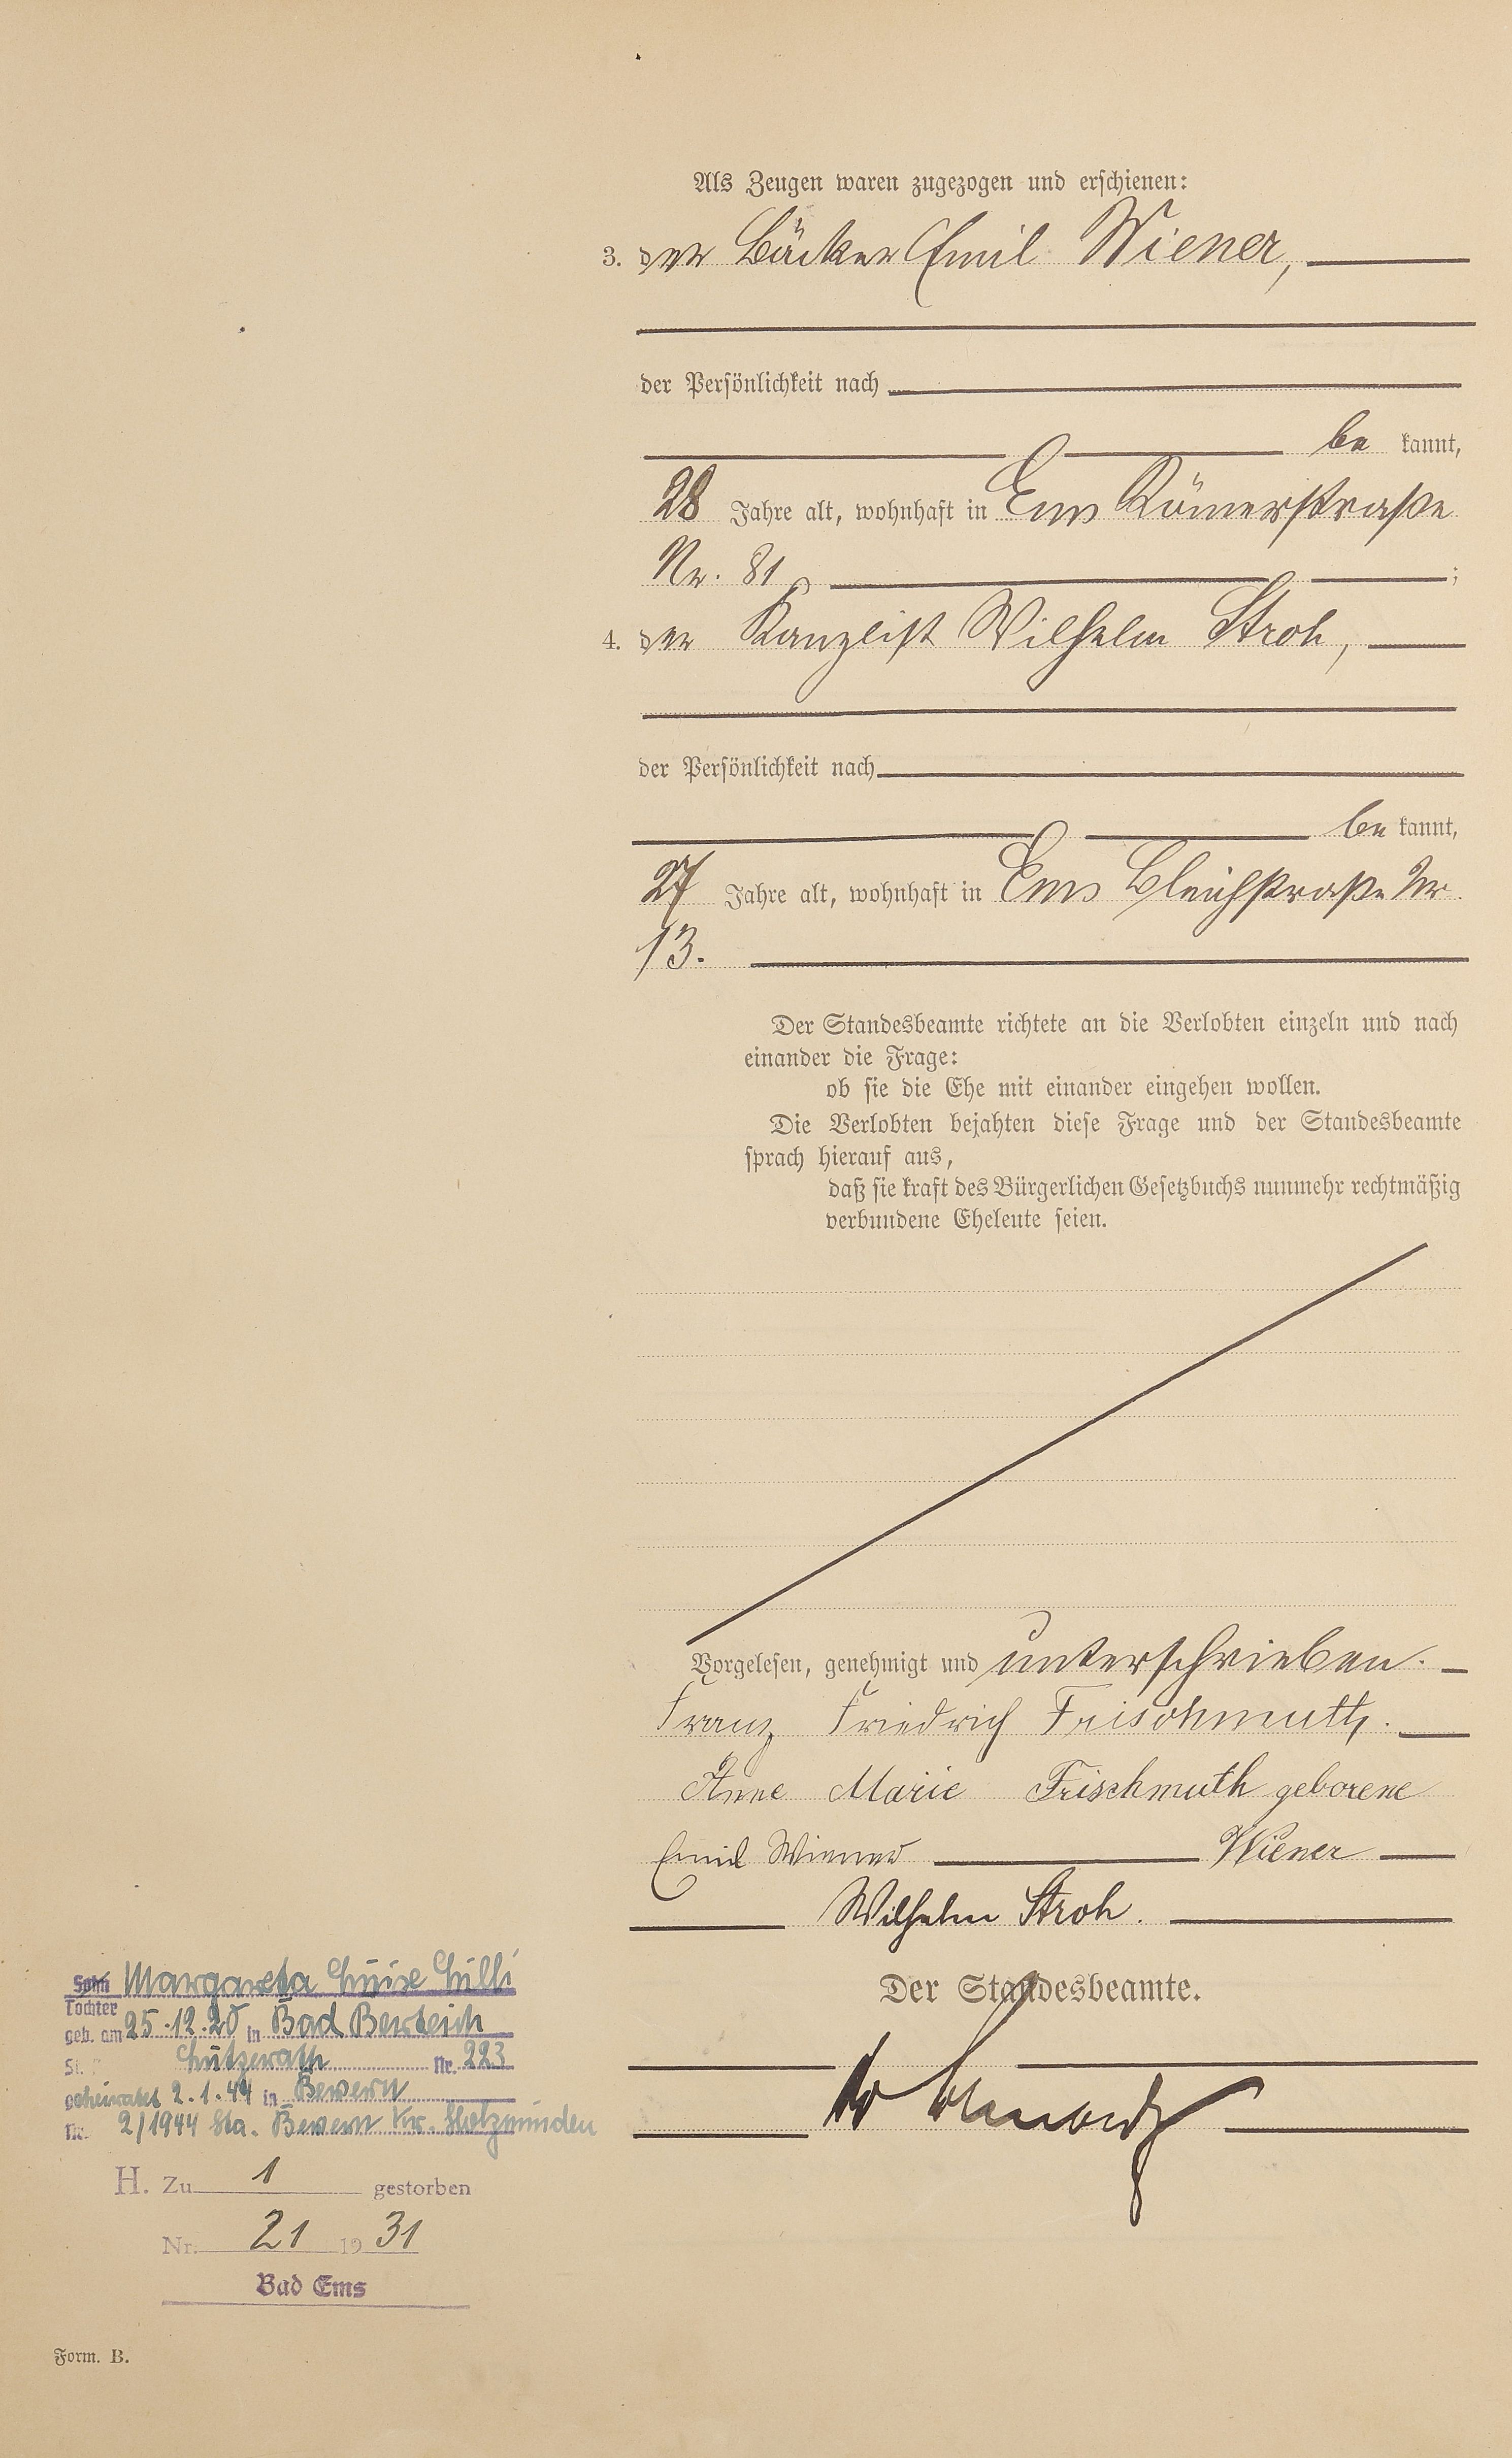 Als Zeugen waren zugezogen und erschienen:
3. der Bäcker Emil Wiener,
der Persönlichkeit nach
be kannt,
28 Jahre alt, wohnhaft in Ems Römerstraße
Nr. 81 ;
4. der Kanzlist Wilhelm Stroh,
der Persönlichkeit nach
be kannt,
27 Jahre alt, wohnhaft in Ems Bleichstraße Nr
13.
Der Standesbeamte richtete an die Verlobten einzeln und nach
einander die Frage:
ob sie die Ehe mit einander eingehen wollen.
Die Verlobten bejahten diese Frage und der Standesbeamte
sprach hierauf aus,
daß sie kraft des Bürgerlichen Gesetzbuchs nunmehr rechtmäßig
verbundene Eheleute seien.
Vorgelesen, genehmigt und unterschrieben.
Franz Friedrich Frischmuth.
Anne Marie Frischmuth geborene
Emil Wiener Wiener
Wilhelm Stroh.
Der Standesbeamte.
Sohn Margareta Luise Lilli
Tochter
geb. am 25.12.20 in Bad Bertrich
St. Lutzerath Nr. 223
geheiratet 2.1.44 in Bevern
Nr. 2/1944 Sta. Bevern Kr. Holzminden
H. Zu 1 gestorben
Nr. 21 19 31
Bad Ems
Form. B.